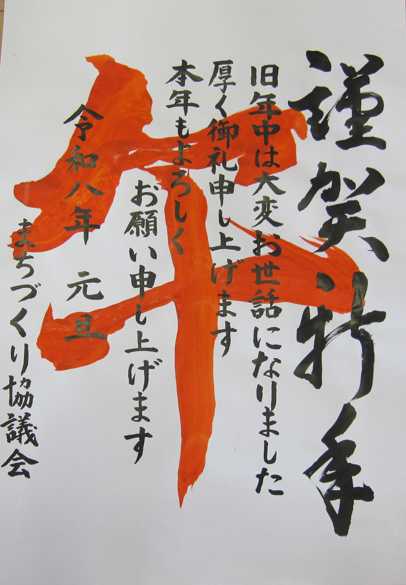 謹賀新年
旧年中は大変お世話になりました
厚く御礼申し上げます
本年もよろしく
お願い申し上げます
令和八年 元旦
まちづくり協議会
午